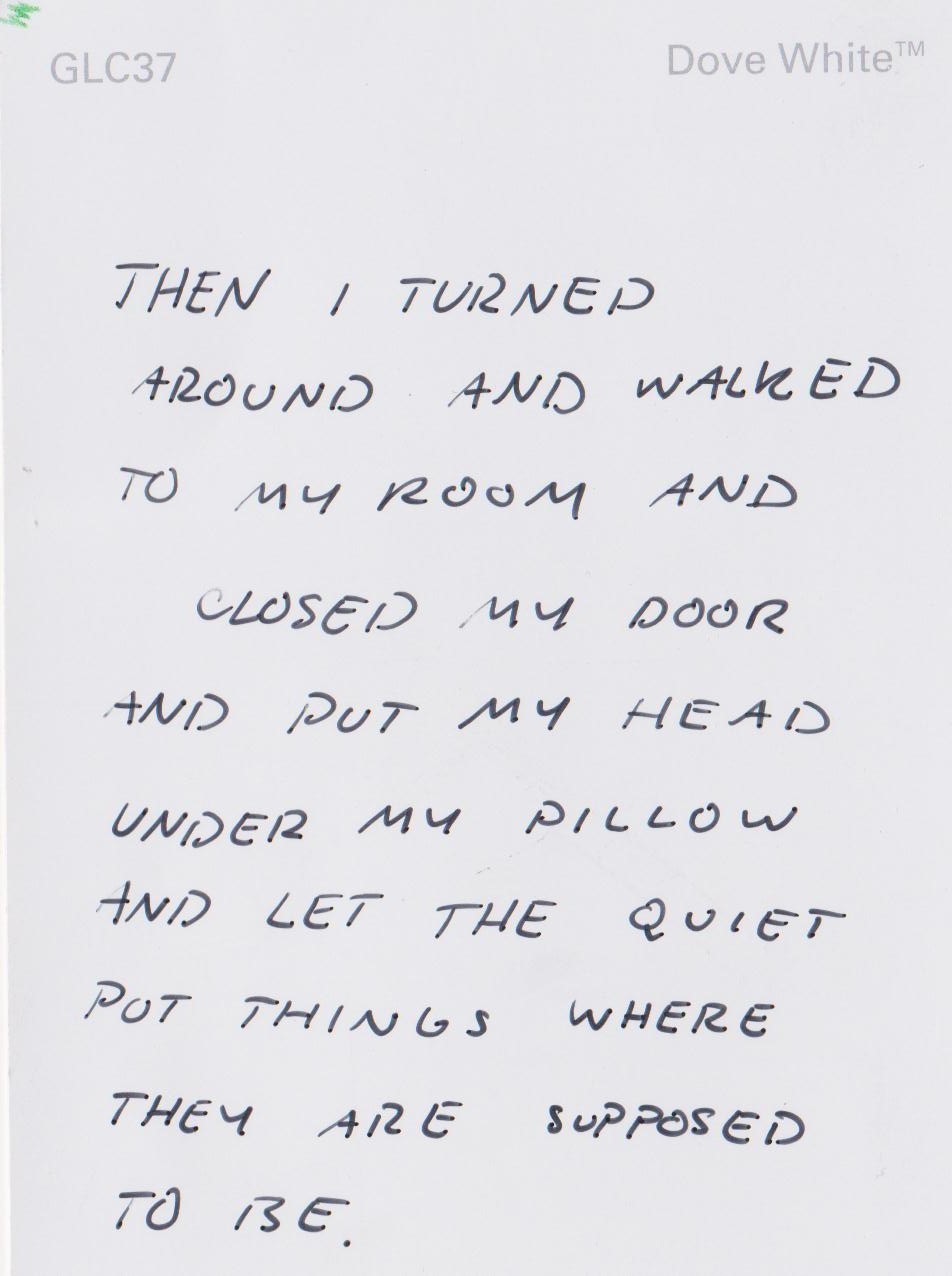 GLC37 Dove White™
THEN I TURNED
AROUND AND WALKED
TO MY ROOM AND
CLOSED MY DOOR
AND PUT MY HEAD
UNDER MY PILLOW
AND LET THE QUIET
PUT THINGS WHERE
THEY ARE SUPPOSED
TO BE.